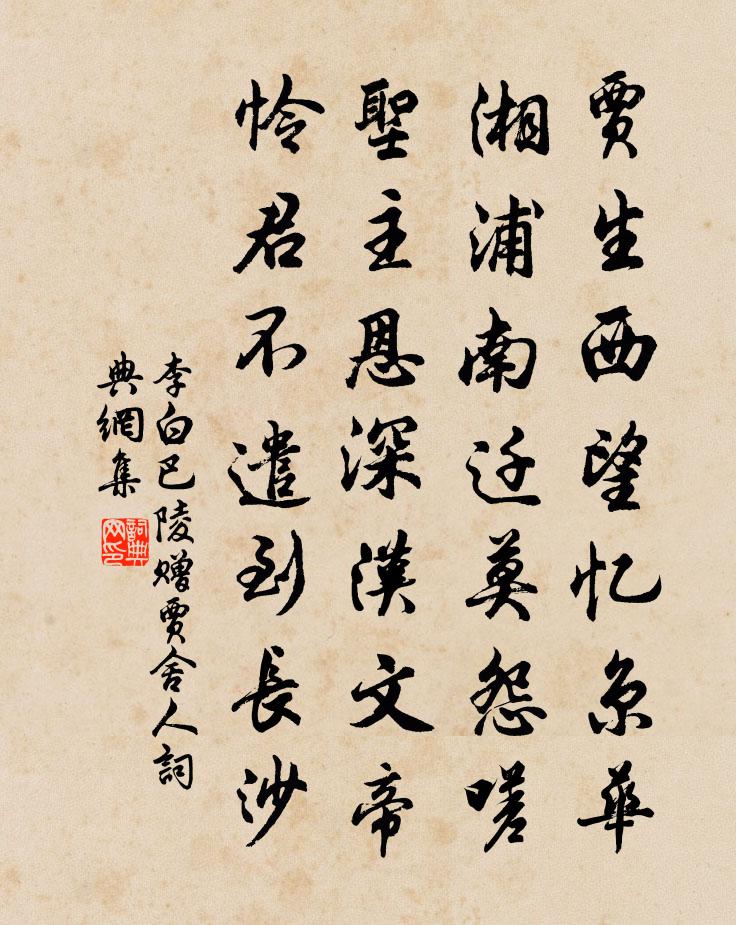 賈生西望忆京華
湘浦南迁莫怨嗟
聖主恩深漢文帝
怜君不遣到長沙
李白巴陵赠賈舍人詞
典網集
詞典网印